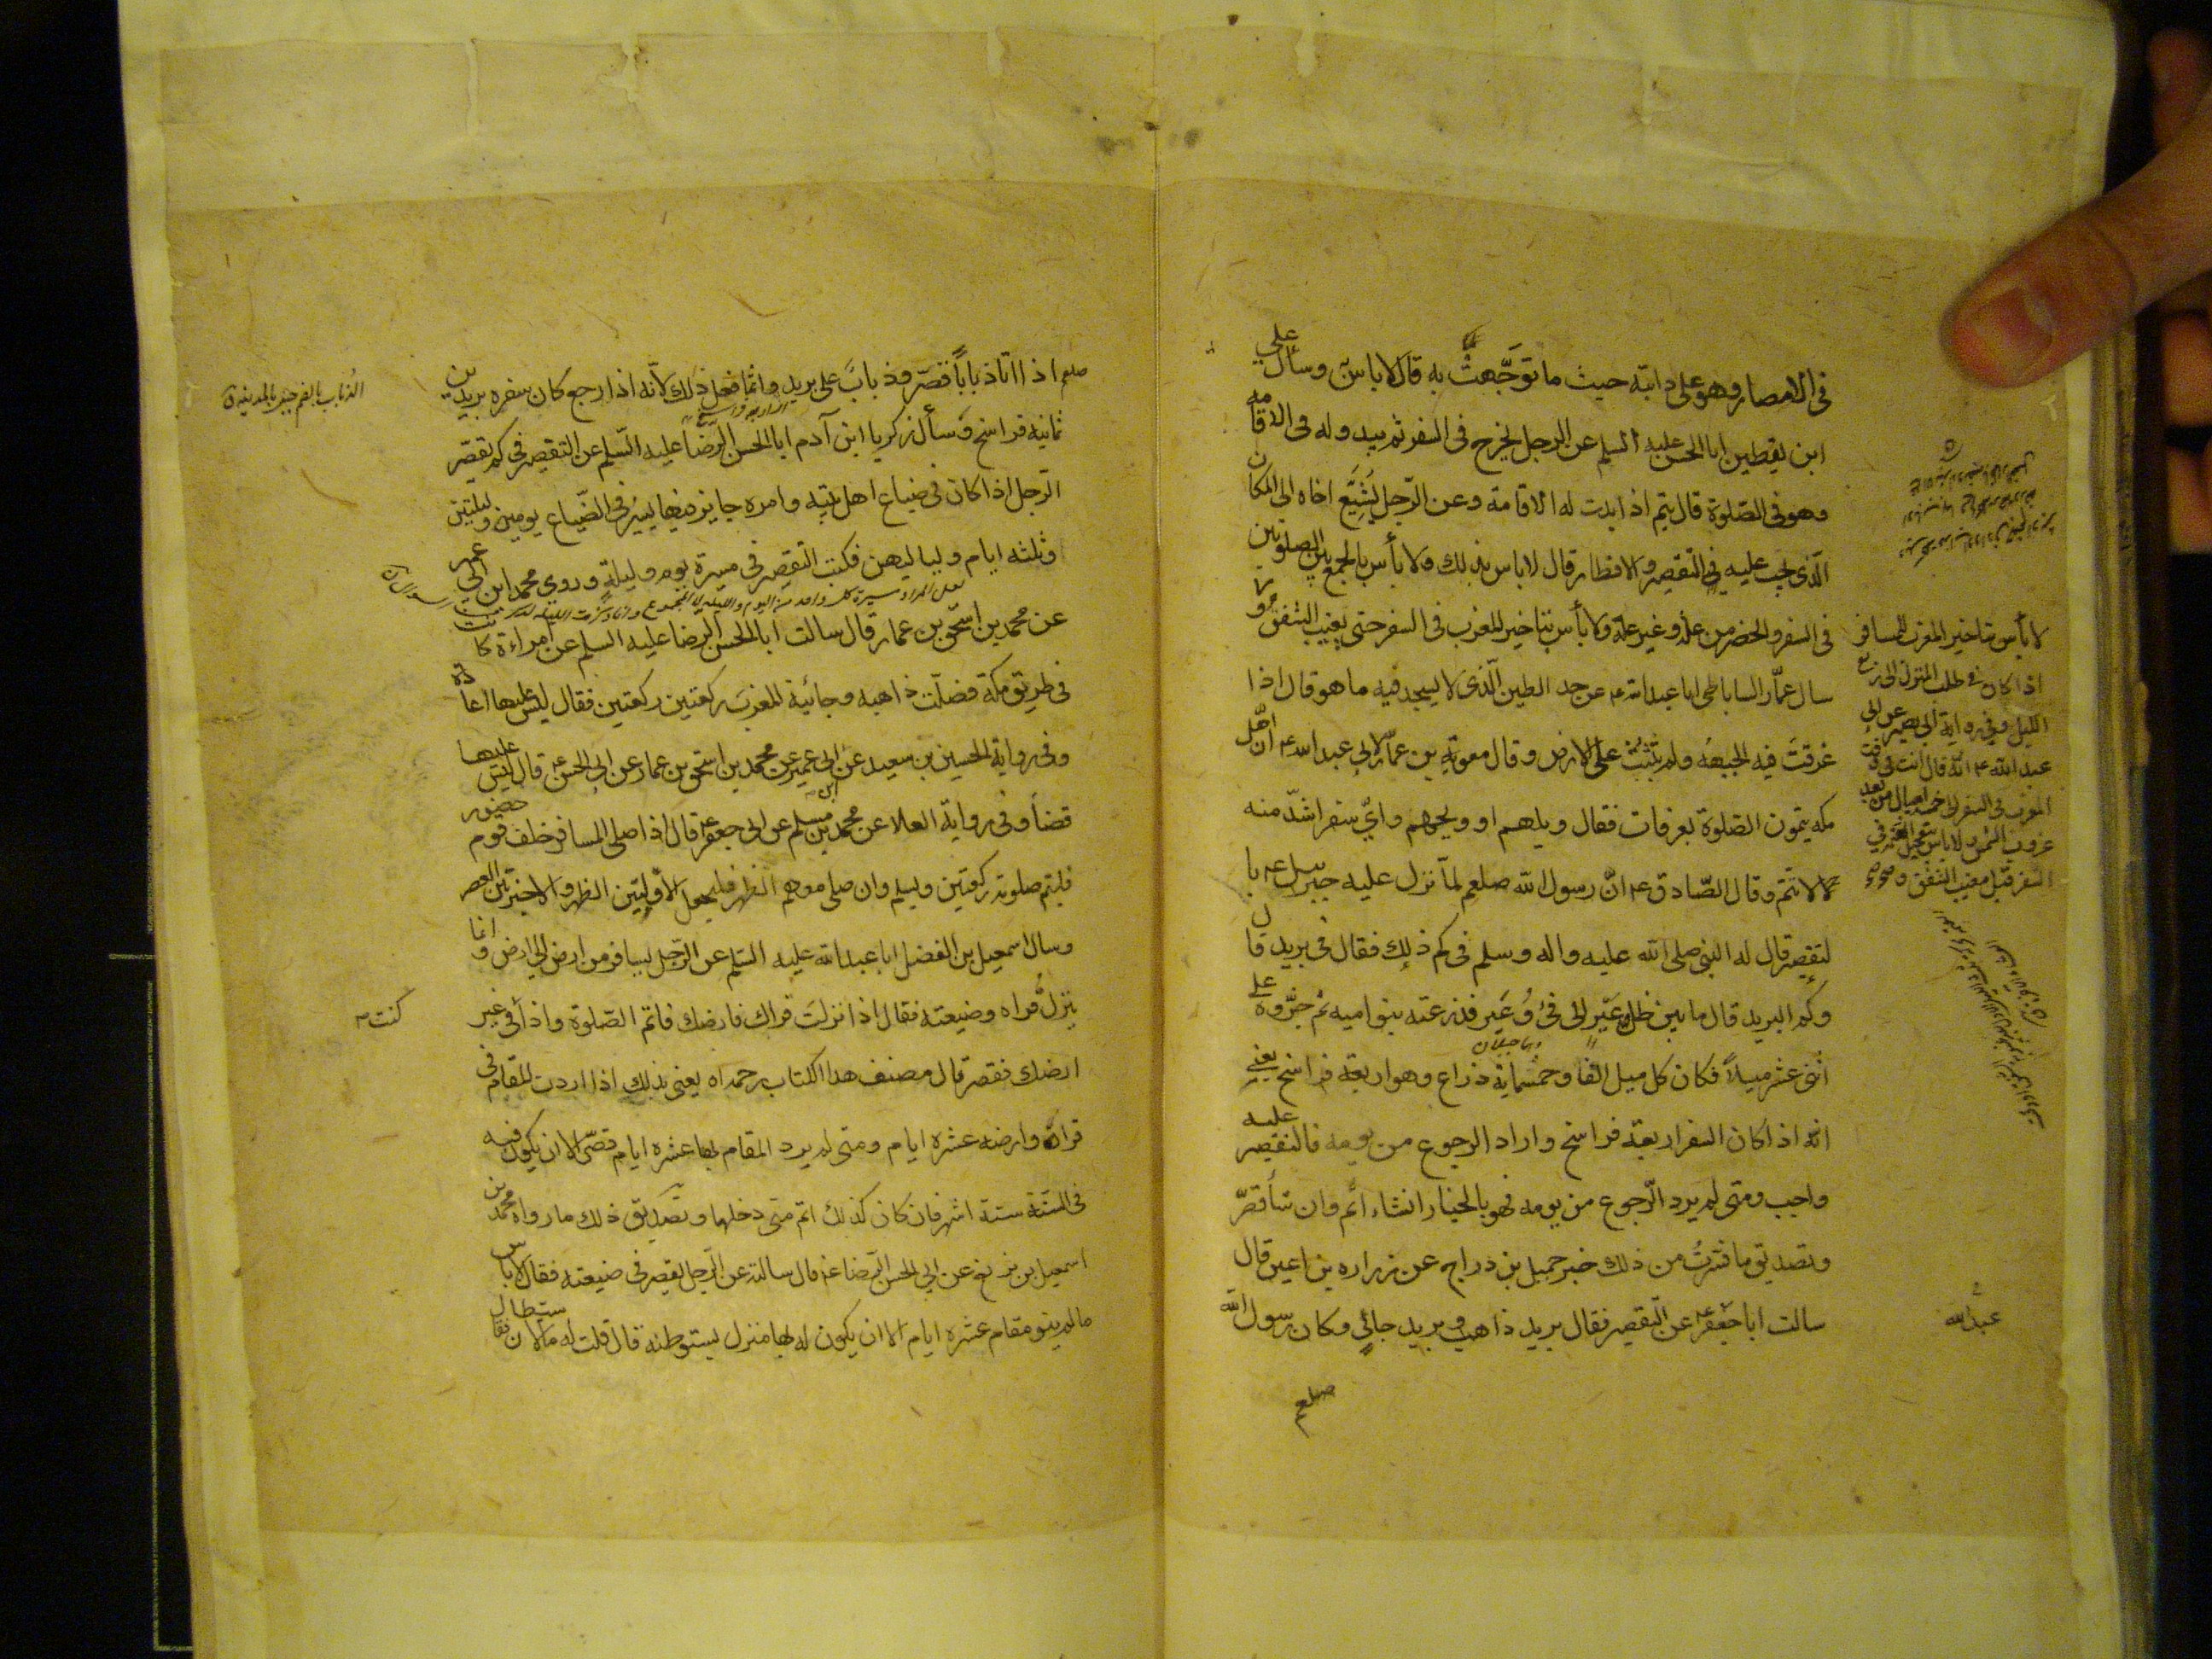 فى الامصار وهو على دابته حيث ما توجهت به قال لا باس وسأل على
ابن يقطين ابا الحسن عليه السلم عن الرجل يخرج فى السفر ثم يبدو له فى الاقامه
وهو فى الصلوة قال يتم اذا بدت له الاقامة وعن الرجل يُشَيِّع اخاه الى المكان
الذى يجب عليه فيه التقصير والافطار قال لا باس بذلك ولا بأس بالجمع بين الصلوتين
فى السفر والحضر من علة وغير علة ولا بأس بتاخير المغرب فى السفر حتى يغيب الشفق و
سال عمّار الساباطى ابا عبد الله ع عن حد الطين الذى لا يسجد فيه ما هو قال اذا
غرقت فيه الجبهة ولم تثبت على الارض وقال معوية بن عمّار لابى عبد الله ع ان اهل
مكه يتمون الصلوة بعرفات فقال ويلهم او ويحهم واىّ سفر اشدّ منه
لا لا تتم وقال الصّادق ع انّ رسول الله صلعم لمّا نزل عليه جبرئيل ع با
لتقصير قال له النبى صلى الله عليه واله وسلم فى كم ذلك فقال فى بريد قال
وكم البريد قال ما بين ظل عَير الى فئ وُعَير فذرعته بنو اميه ثم جزّوه على
اثنى عشر ميلاً فكان كل ميل الفا وخمسماية ذراع وهو اربعة فراسخ يعنى
انه اذا كان السفر اربعة فراسخ واراد الرجوع من يومه فالتقصير عليه
واجب ومتى لم يرد الرّجوع من يومه فهو بالخيار انشاء اتم وان شأ قصّر
وتصديق ما فسّرتُ من ذلك خبر جميل بن دراج عن زراره بن اعين قال
سالت ابا جعفر ع عن التقصير فقال بريد ذاهب وبريد جائى وكان رسول الله
صلعم
لا بأس بتاخير المغرب للمسافر
اذا كان فى طلب المنزل الى ربع
الليل وفى رواية ابى بصير عن ابى
عبد الله ع انّه قال انت فى وقت
المغرب فى السفر الى خمسة اميال من بعد
غروب الشمس ولا باس بتعجيل العتمة فى
السفر قبل مغيب الشفق
عبد الله
صلعم اذا اتا ذباباً قصّر وذبابٌ على بريد وانّما فعل ذلك لأنّه اذا رجع كان سفره بريدين
ثمانية فراسخ وسأل زكريا ابن آدم ابا الحسن الرضا عليه السّلم عن التقصير فى كم يقصّر
الرجل اذا كان فى ضياع اهل بيته وامره جايز فيها يسير فى الضّياع يومين وليلتين
وثلثه ايام ولياليهن فكتب التقصير فى مسيرة يوم وليلة وروى محمد ابن ابى عمير
عن محمد بن اسحق بن عمار قال سالت ابا الحسن الرضا عليه السلم عن امراءة كانت
فى طريق مكة فصلّت ذاهبه وجائية المغرب ركعتين ركعتين فقال ليس عليها اعادة
وفى رواية الحسين بن سعيد عن ابن ابى عمير عن محمد بن اسحق بن عمار عن ابى الحسن ع قال ليس عليها
قضأ وفى رواية العلا عن محمد بن مسلم عن ابى جعفر ع قال اذا صلى المسافر خلف قوم حضور
فليتم صلوته ركعتين ويسلم وان صلى معهم الظهر فليجعل الاوليتين الظهر والاخيرتين العصر
وسال اسمعيل بن الفضل ابا عبد الله عليه السّلم عن الرّجل يسافر من ارض الى ارض وانما
ينزل قراه وضيعته فقال اذا نزلت قراك فارضك فاتم الصّلوة واذا فى غير
كنت
ارضك فقصر قال مصنف هذا الكتاب رحمه اه يعنى بذلك اذا اردت المقام فى
قراه وارضه عشرة ايام ومتى لم يرد المقام بها عشره ايام قصّر الا ان يكون فيه
فى السّنة ستة اشهر فان كان كذلك اتم متى دخلها وتصديق ذلك ما رواه محمد بن
اسمعيل بن بزيع عن ابى الحسن الرضا ع قال سالته عن الرّجل يقصر فى ضيعته فقال لا باس
ما لم ينو مقام عشرة ايام الا ان يكون له بها منزل يستوطنه قال قلت له ما الاستيطان فقال